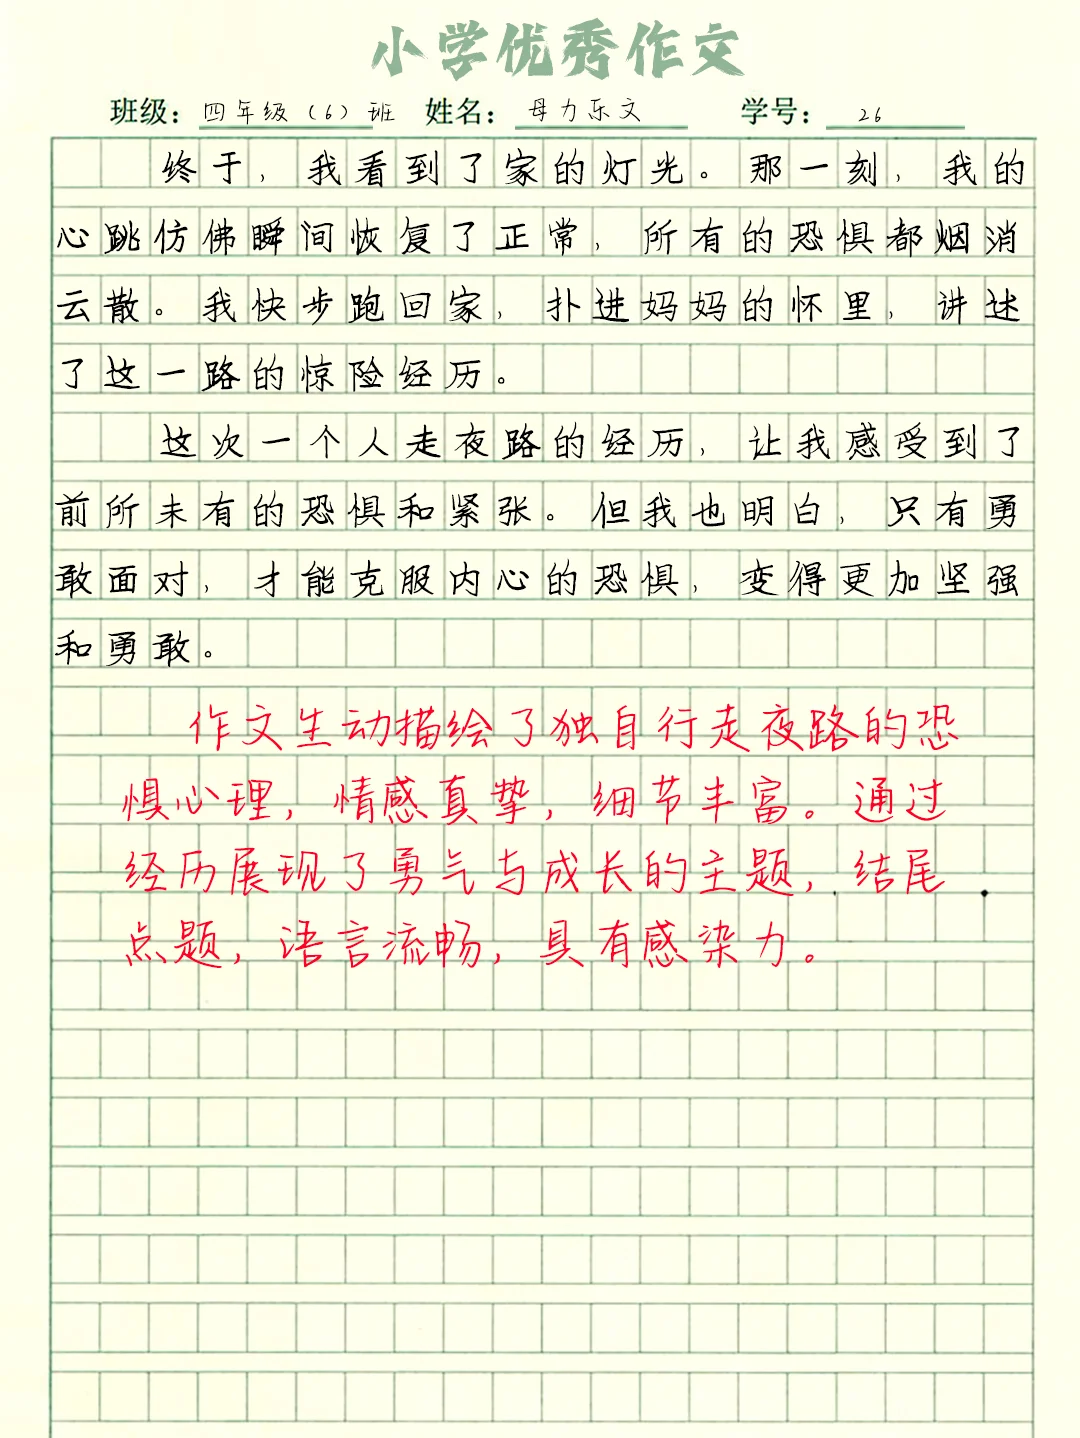 小学优秀作文
班级：四年级（6）班 姓名：母力乐文 学号：26
终于，我看到了家的灯光。那一刻，我的
心跳仿佛瞬间恢复了正常，所有的恐惧都烟消
云散。我快步跑回家，扑进妈妈的怀里，讲述
了这一路的惊险经历。
这次一个人走夜路的经历，让我感受到了
前所未有的恐惧和紧张。但我也明白，只有勇
敢面对，才能克服内心的恐惧，变得更加坚强
和勇敢。
作文生动描绘了独自行走夜路的恐
惧心理，情感真挚，细节丰富。通过
经历展现了勇气与成长的主题，结尾
点题，语言流畅，具有感染力。